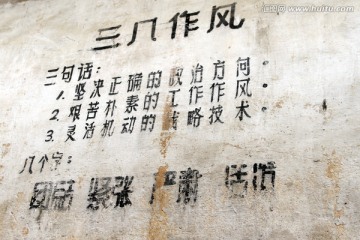 三八作风
三句话:
1. 坚决正确的政治方向。
2. 艰苦朴素的工作作风。
3. 灵活机动的战略技术。
八个字:
团结 紧张 严肃 活泼
www.huitu.com